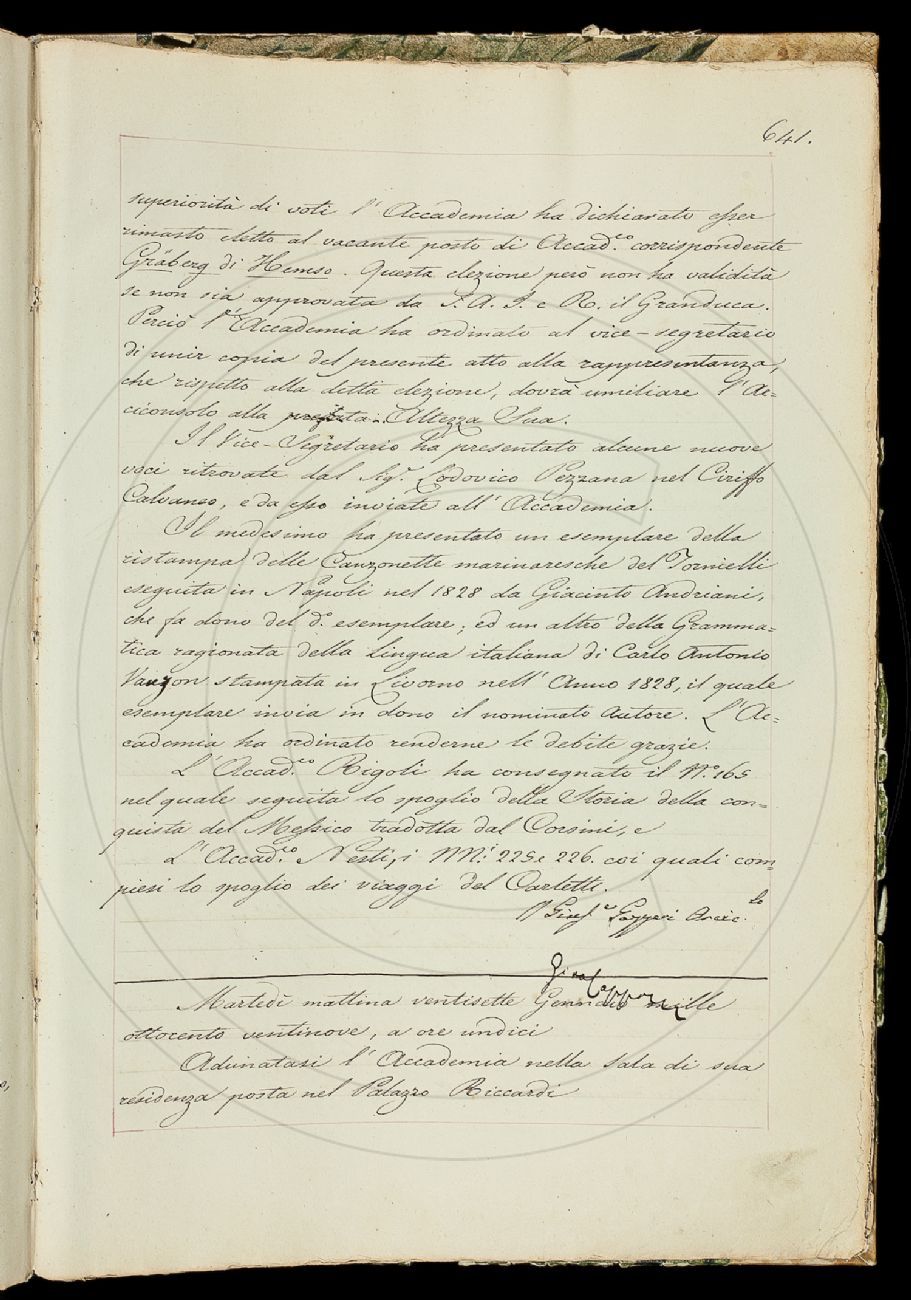 641.
superiorità di voti l'Accademia ha dichiarato esser
rimasto eletto al vacante posto di Accad.co corrispondente
Gräberg di Hemso. Questa elezione però non ha validità
se non sia approvata da S. A. I. e R. il Granduca.
Perciò l'Accademia ha ordinato al vice-segretario
di unir copia del presente atto alla rappresentanza,
che rispetto alla detta elezione, dovrà umiliare l'Ar=
ciconsolo alla prefata Altezza Sua.
Il Vice-Segretario ha presentato alcune nuove
voci ritrovate dal Sig.r Lodovico Pezzana nel Ciriffo
Calvaneo, e da esso inviate all'Accademia.
Il medesimo ha presentato un esemplare della
ristampa delle Canzonette marinaresche del Tornielli
eseguita in Napoli nel 1828 da Giacinto Andriani,
che fa dono del d.o esemplare; ed un altro della Gramma=
tica ragionata della lingua italiana di Carlo Antonio
Vanzon stampata in Livorno nell'Anno 1828, il quale
esemplare invia in dono il nominato autore. L'Ac=
cademia ha ordinato renderne le debite grazie.
L'Accad.co Rigoli ha consegnato il N.o 165
nel quale seguita lo spoglio della Storia della con=
quista del Messico tradotta dal Corsini, e
L'Accad.co Nesti, i NN.i 225 e 226. coi quali com=
piesi lo spoglio dei viaggi del Carletti.
Gius.e Gazzeri Arcic.lo
Martedì mattina ventisette Gennaio mille
ottocento ventinove, a ore undici
Adunatasi l'Accademia nella sala di sua
residenza posta nel Palazzo Riccardi